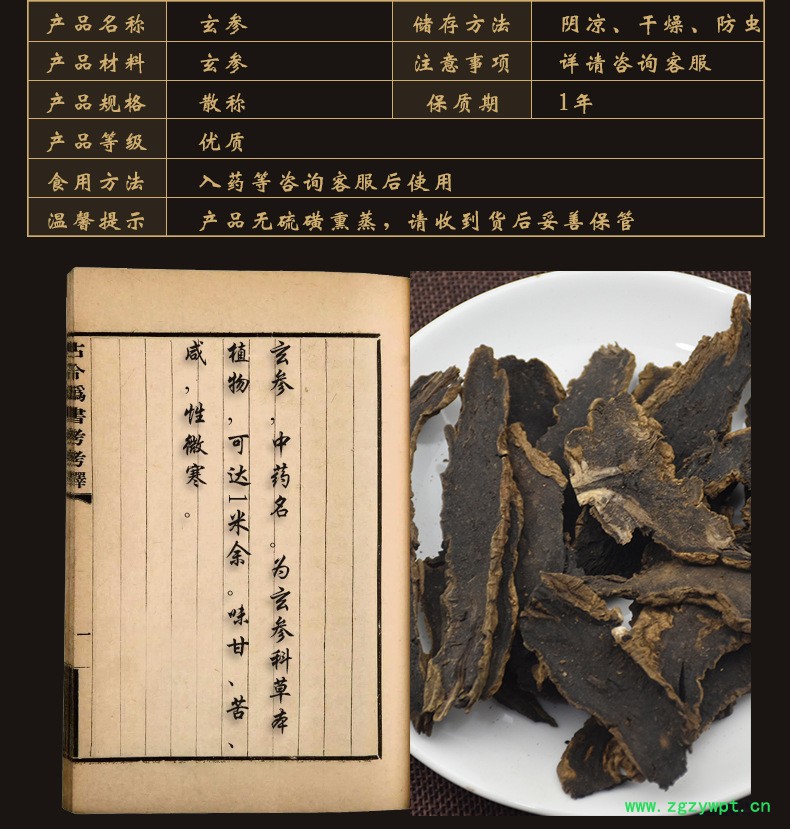 产品名称 玄参 储存方法 阴凉、干燥、防虫
产品材料 玄参 注意事项 详请咨询客服
产品规格 散称 保质期 1年
产品等级 优质
食用方法 入药等咨询客服后使用
温馨提示 产品无硫磺熏蒸，请收到货后妥善保管
玄参，中药名。为玄参科草本
植物，可达1米余。味甘、苦、
咸，性微寒。
古今爲書考考釋
一
www.zgzywpt.cn